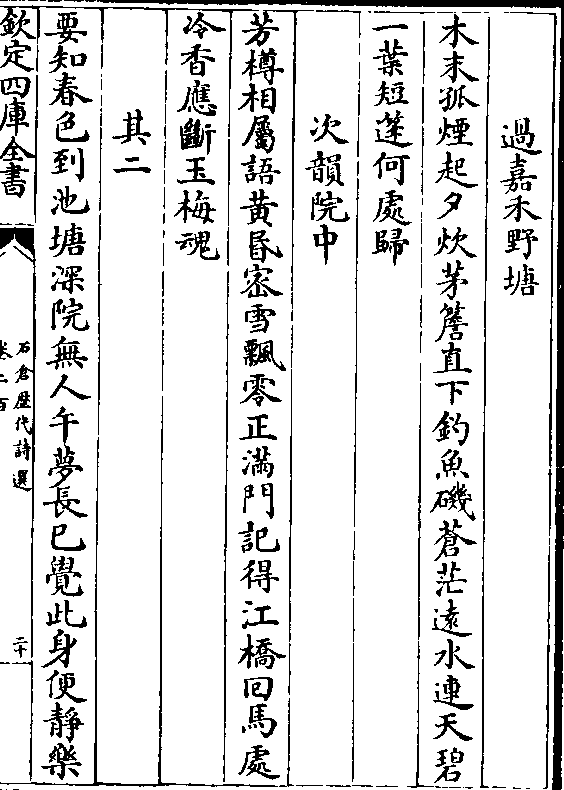 過嘉禾野塘
木末孤煙起夕炊茅簷直下釣魚磯蒼茫遠水連天碧
一葉短篷何處歸
次韻院中
芳樽相屬語黄昏密雪飄零正滿門記得江橋回馬處
冷香應斷玉梅魂
其二
要知春色到池塘深院無人午夢長已覺此身便靜樂
欽定四庫全書
石倉歴代詩選
卷二百
二十